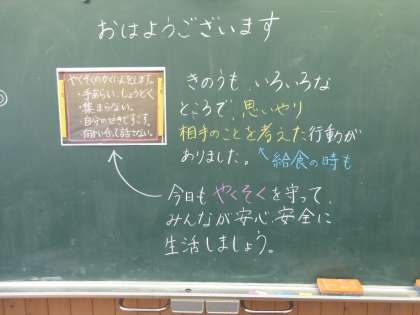 おはようございます
やくそくのかくにんをします。
・手あらい、しょうどく
・集まらない。
・自分のせきですごす。
・向かい合って話さない。
きのうも、いろいろな
ところで、思いやり
相手のことを考えた行動が
ありました。
給食の時も
今日もやくそくを守って、
みんなが安心安全に
生活しましょう。